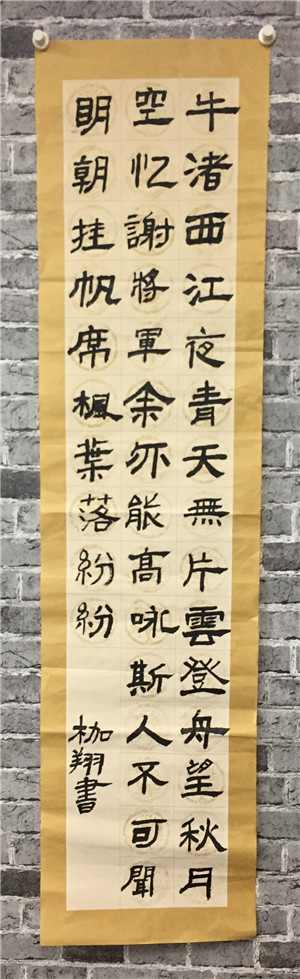 牛渚西江夜青天無片雲登舟望秋月
空忆謝將軍余亦能高咏斯人不可聞
明朝挂帆席楓葉落紛紛
枷翔書